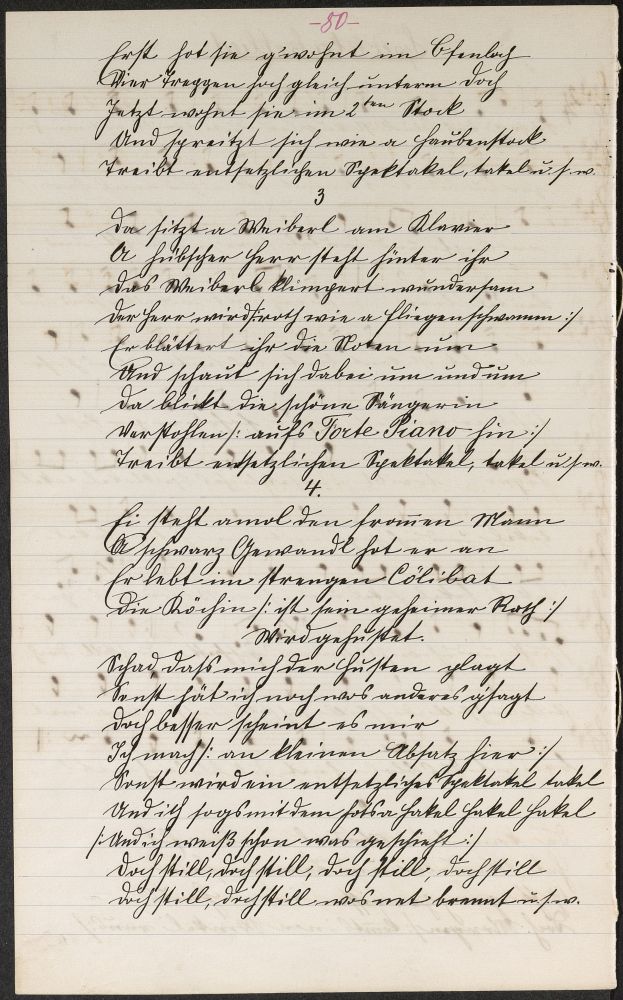 -80-
Erst hot sie g'wohnt im Ofenloch
Vier Treppen hoch gleich unterm Doch
Jetzt wohnt sie im 2ten Stock
Und spreitzt sich wie a Haubenstock
Treibt entsetzlichen Spektakel, takel u. s. w.
3
Da sitzt a Weiberl am Klavier
A hübscher Herr steht hinter ihr
Das Weiberl klimpert wundersam
Der Herr wird /: roth wie a Fliegenschwamm :/
Er blättert ihr die Noten um
Und schaut sich dabei um und um
Da blickt die schöne Sängerin
Verstohlen /: aufs Forte Piano hin :/
Treibt entsetzlichen Spektakel, takel u. s. w.
4.
Ei seht amol den from̅en Mann
A schwarz Gewandl hot er an
Er lebt im strengen Cölibat
Die Köchin /: ist sein geheimer Rath :/
Wird gehustet.
Schad, dass mich der Husten plagt
Sonst hät ich noch was anderes g'sagt
Doch besser scheint es mir
Ich mach /: an kleinen Absatz hier :/
Sonst wird ein entsetzliches Spektakel takel
Und ich sogs mit dem hots a Hakel Hakel Hakel
/: Und ich weiß schon was geschieht :/
Doch still, doch still, doch still, doch still
doch still, doch still wos net brennt u. s. w.